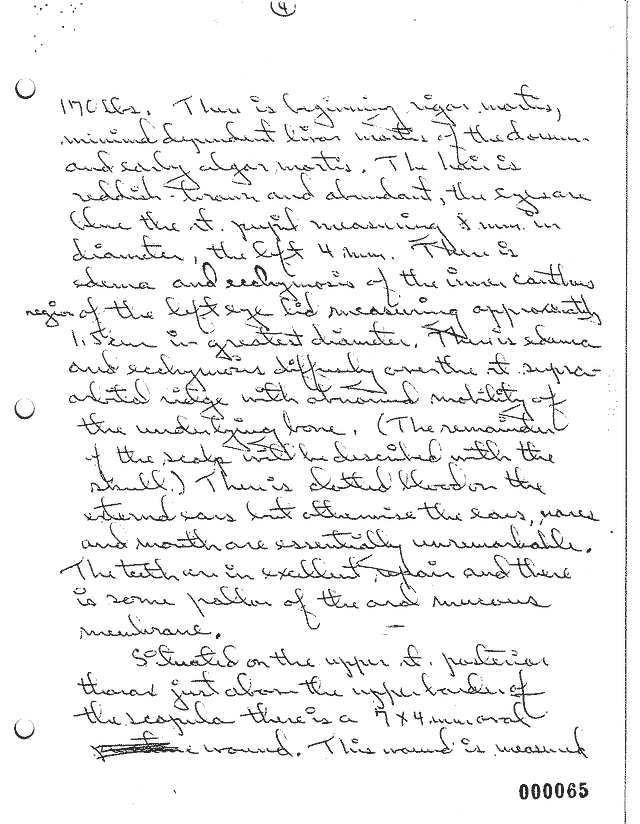 4
170 lbs. There is beginning rigor mortis,
minimal dependent livor mortis of the dorsum
and early algor mortis. The hair is
reddish-brown and abundant, the eyes are
blue the rt. pupil measuring 8 mm. in
diameter, the left 4 mm. There is
edema and ecchymosis of the inner canthus
region of the left eye lid measuring approximately
1.5 cm in greatest diameter. There is edema
and ecchymosis diffusely over the rt. supra-
orbital ridge with abnormal mobility of
the underlying bone. (The remainder
of the scalp will be described with the
skull.) There is clotted blood on the
external ears but otherwise the ears, nares
and mouth are essentially unremarkable.
The teeth are in excellent repair and there
is some pallor of the oral mucous
membrane.
Situated on the upper rt. posterior
thorax just above the upper border of
the scapula there is a 7 x 4 mm oval
wound. This wound is measured
000065